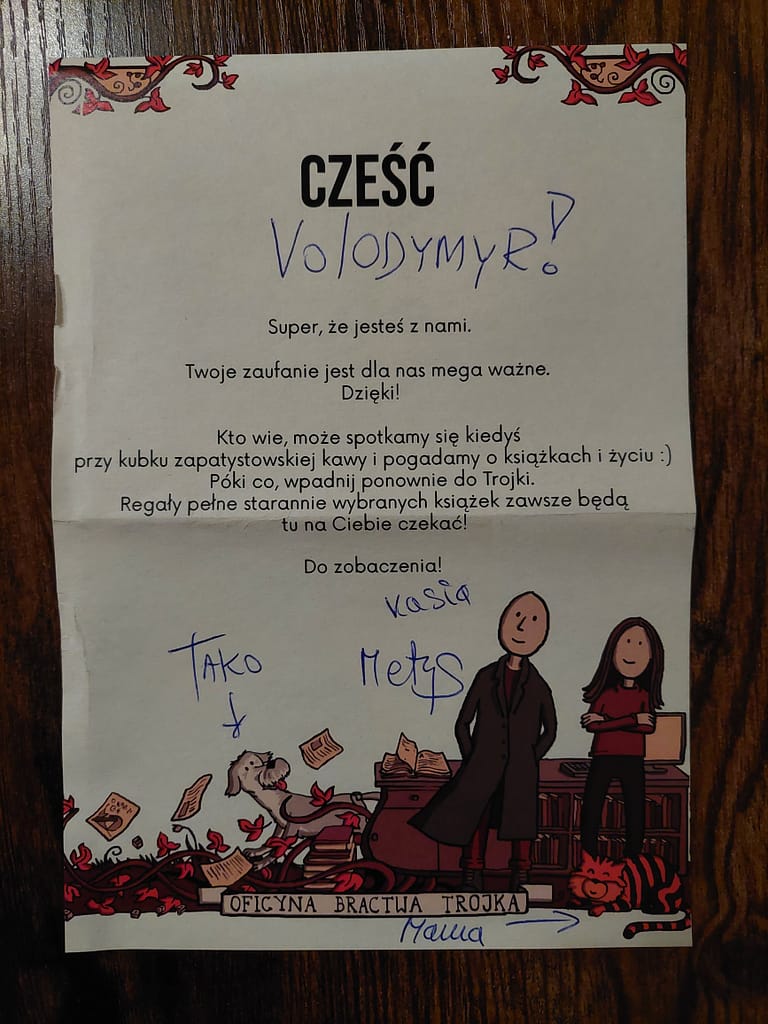 CZEŚĆ
VOlODYMYR!
Super, że jesteś z nami.
Twoje zaufanie jest dla nas mega ważne.
Dzięki!
Kto wie, może spotkamy się kiedyś
przy kubku zapatystowskiej kawy i pogadamy o książkach i życiu :)
Póki co, wpadnij ponownie do Trojki.
Regały pełne starannie wybranych książek zawsze będą
tu na Ciebie czekać!
Do zobaczenia!
Kasia
TAKO
Metys
OFICYNA BRACTWA TROJKA